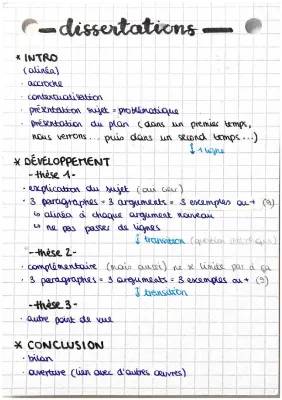 dissertations
* INTRO
(alinéa)
· accroche
· contextualisation
· présentation sujet = problématique
· présentation du plan (dans un premier temps,
nous verrons... puis dans un second temps...)
↓ 1 ligne
* DÉVELOPPEMENT
- thèse 1 -
· explication du sujet (oui car)
· 3 paragraphes = 3 arguments = 3 exemples ou + (9)
↳ alinéa à chaque argument nouveau
↳ ne pas passer de lignes
↓ transition (question
- thèse 2 -
· complémentaire (mais aussi) ne se limite pas à ça
· 3 paragraphes = 3 arguments = 3 exemples ou + (9)
↓ transition
- thèse 3 -
· autre point de vue
* CONCLUSION
· bilan
· ouverture (lien avec d'autres œuvres)